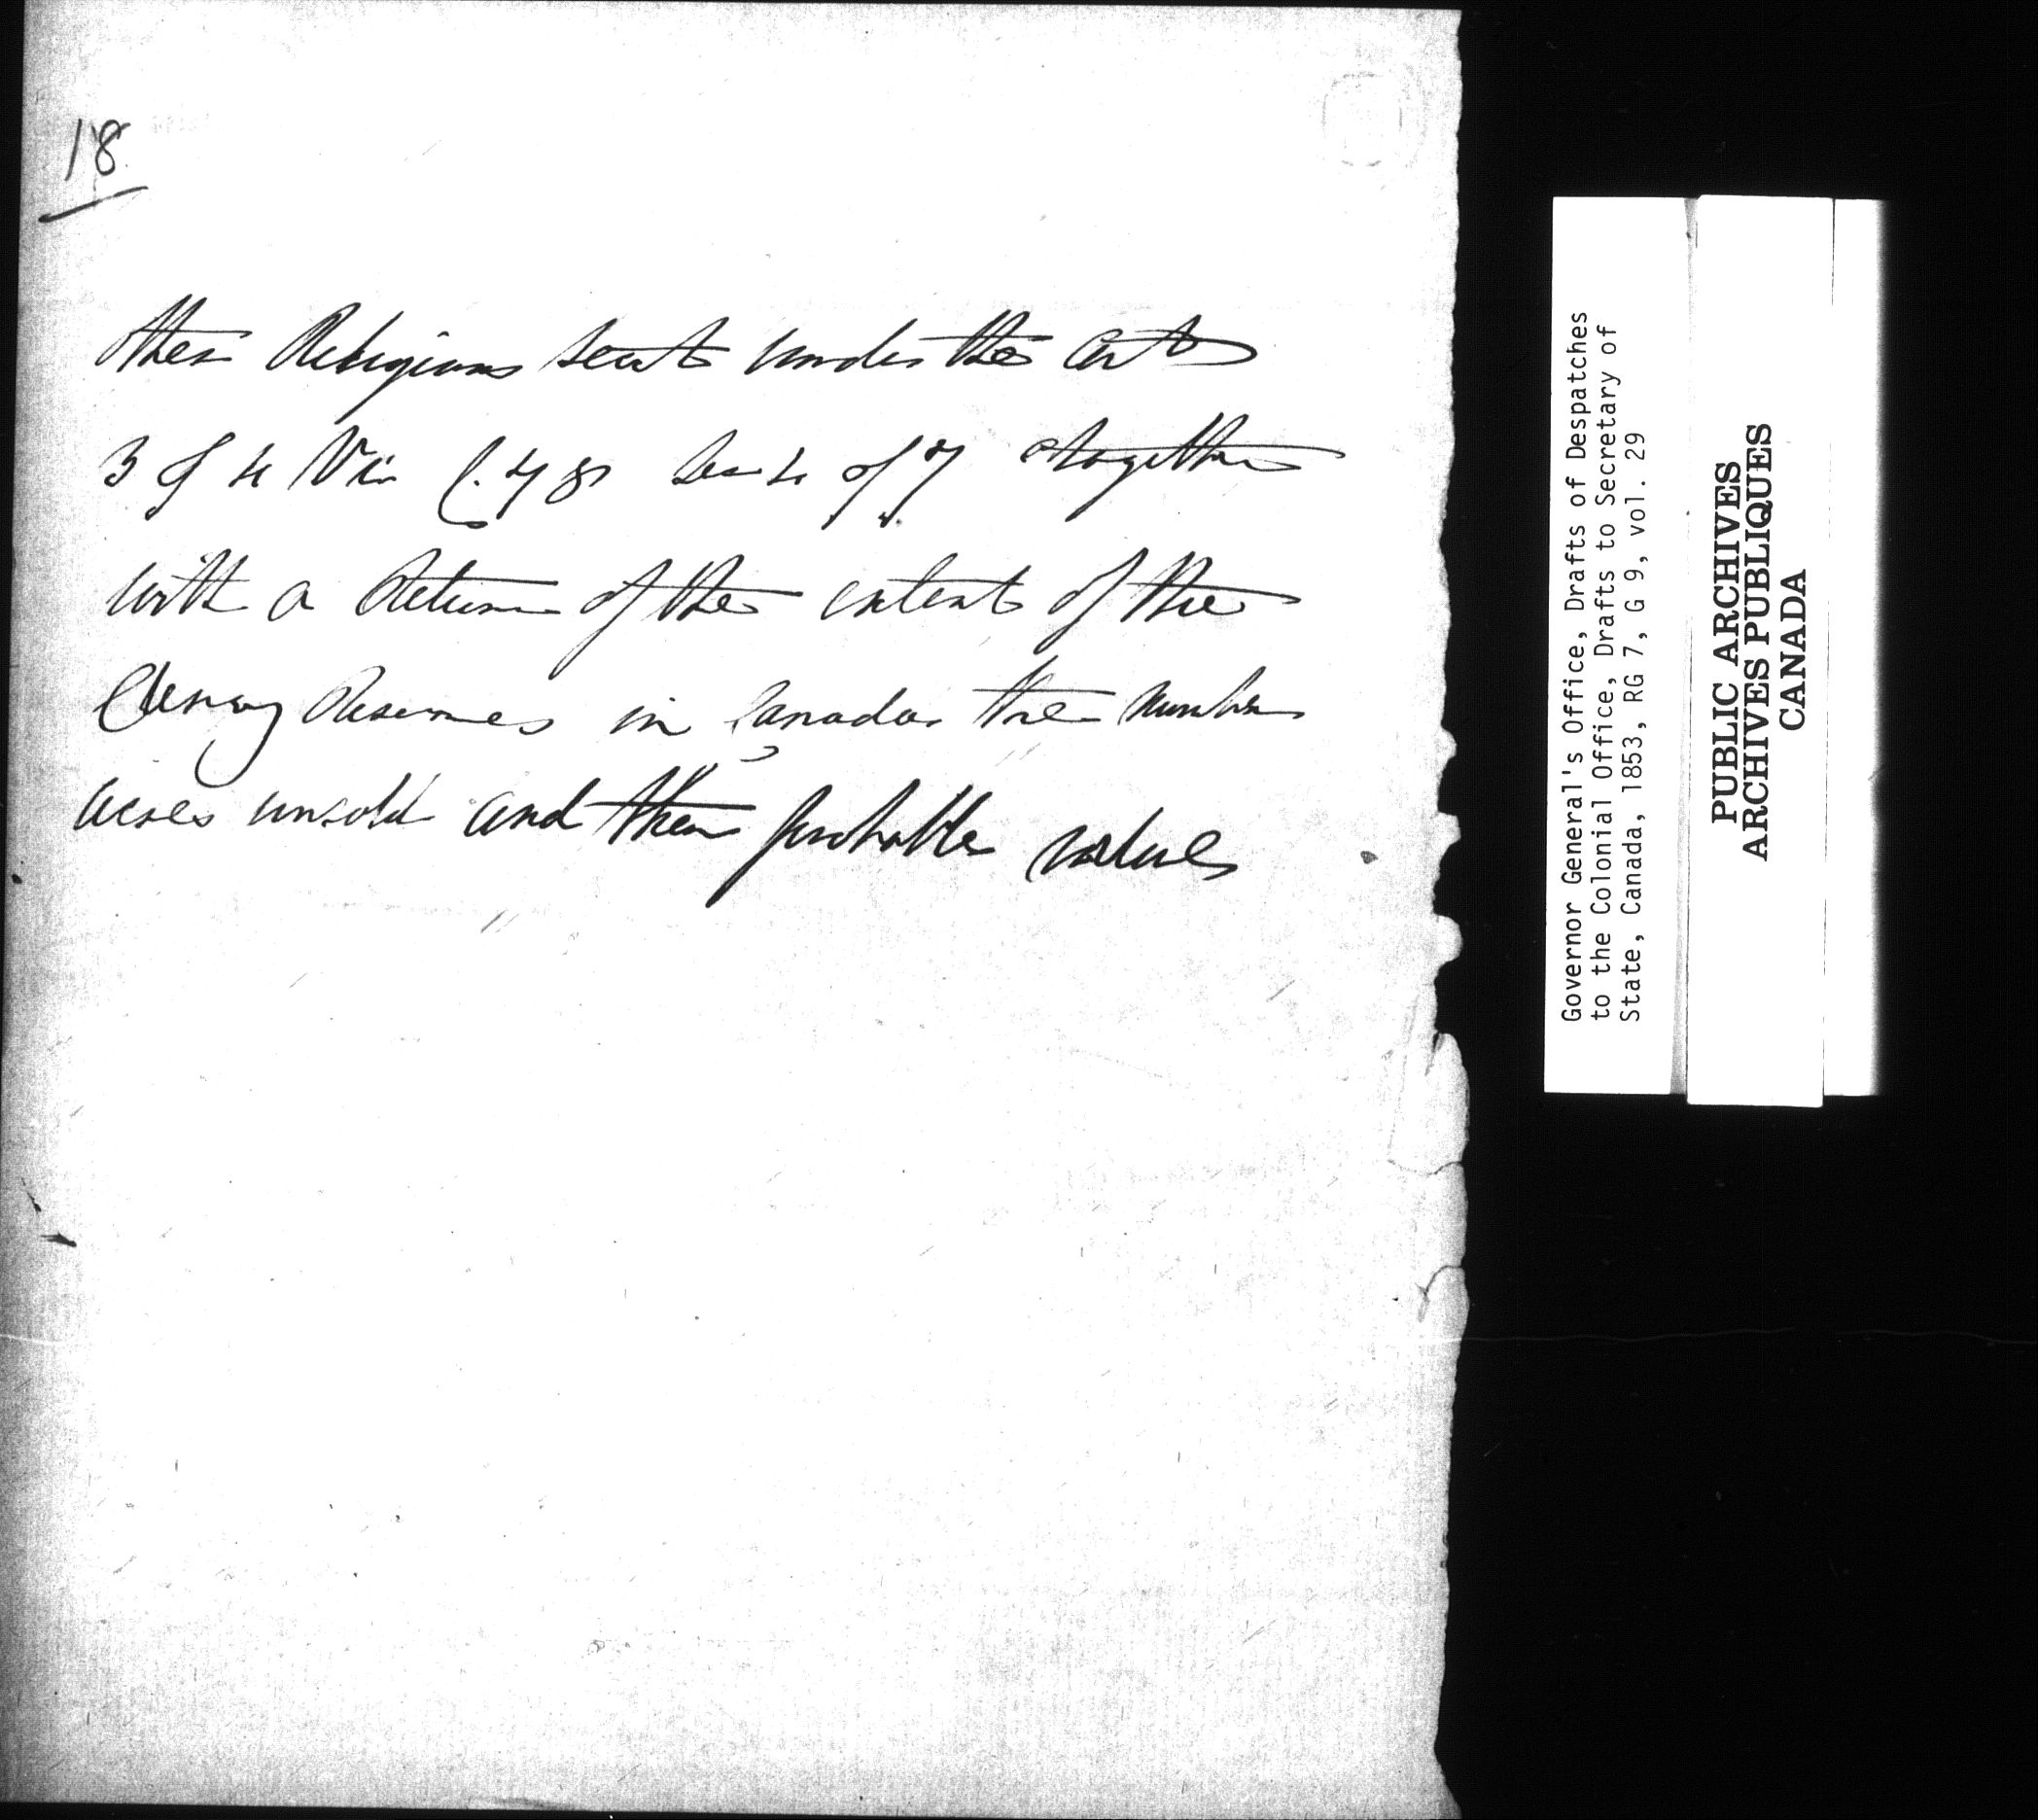 18
other Religious sects under the Act
3 & 4 Vic C. 78 Sec 4 & 7 together
with a Return of the extent of the
Clergy Reserves in Canada the number
acres unsold and their probable value
Governor General's Office, Drafts of Despatches
to the Colonial Office, Drafts to Secretary of
State, Canada, 1853, RG 7, G 9, vol. 29
PUBLIC ARCHIVES
ARCHIVES PUBLIQUES
CANADA